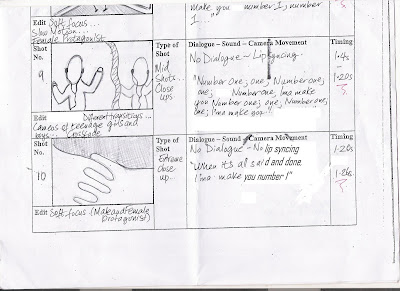 make you number 1, number
1..."
Edit Soft focus...
Slow Motion...
Female Protagonist
Shot
No.
9
Type of
Shot
Mid
Shots..
Close
ups
Dialogue – Sound – Camera Movement
No Dialogue ~ Lip syncing
"Number one; one; Number one;
one; Number one, Ima make
you Number one; one; Number one,
one; Ima make you
Timing
1·20s
?
Edit
Cameos of teenage girls and
boys... Crossfade
Shot
No.
10
Type of
Shot
Extreme
Close
up..
Dialogue – Sound – Camera Movement
No Dialogue ~ No lip syncing
"When it's all said and done
I'ma make you number 1"
Timing
1·20s
1·26s
?
Edit Soft focus (Male and Female
Protagonist)